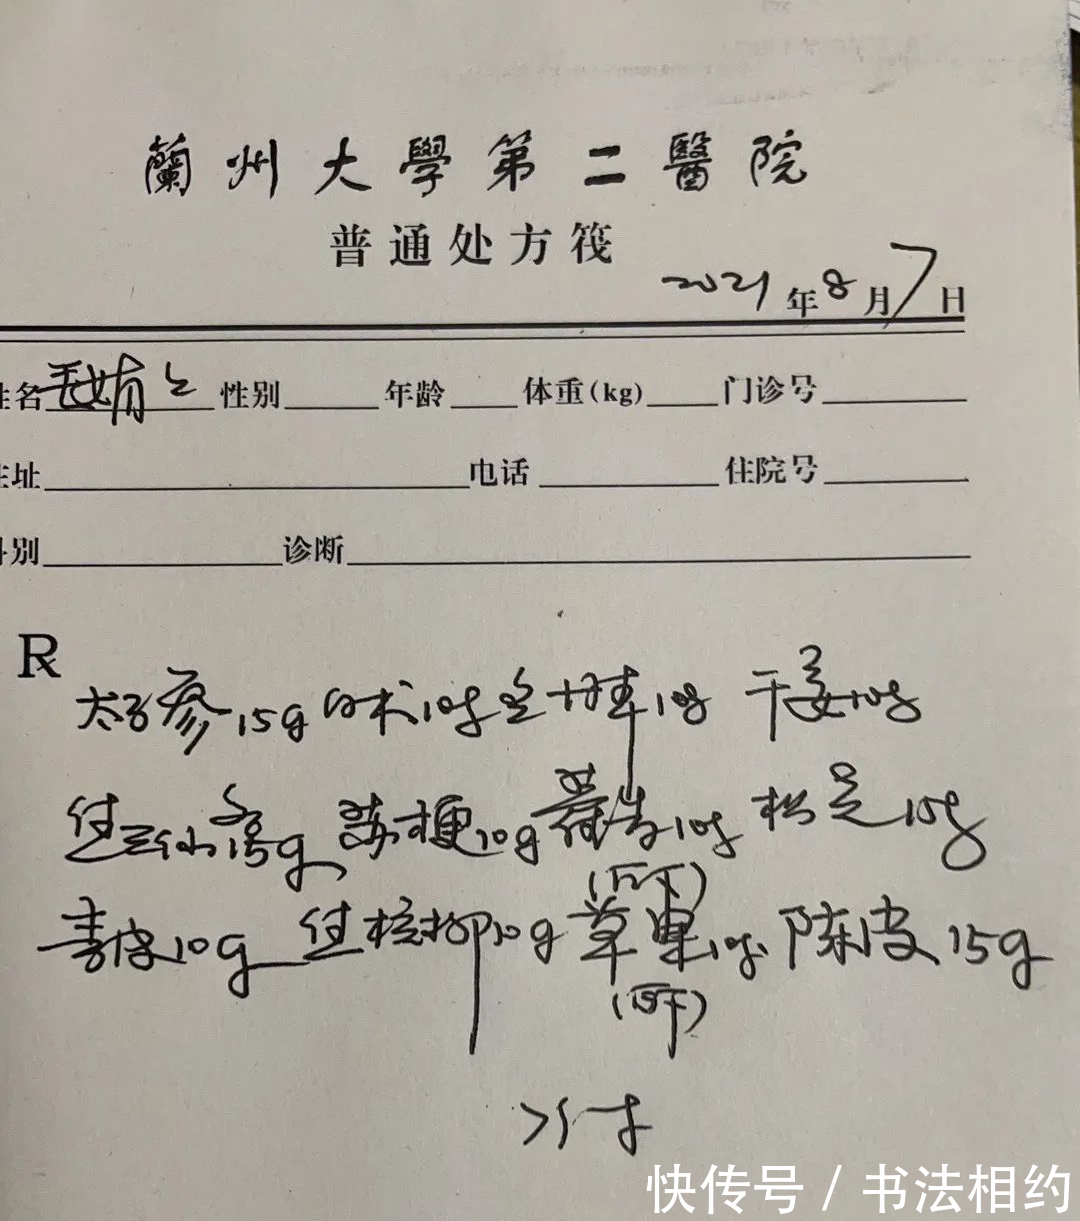 蘭州大學第二醫院
普通处方筏
2021年8月7日
姓名 性别 年龄 体重(kg) 门诊号
住址 电话 住院号
科别 诊断
R
太子参15g 白术10g 10g 干姜10g
15g 苏梗10g 藿香10g 枳壳15g
(后下)
青皮10g 槟榔10g 草果10g 陈皮15g
(后下)
快传号 / 书法相约